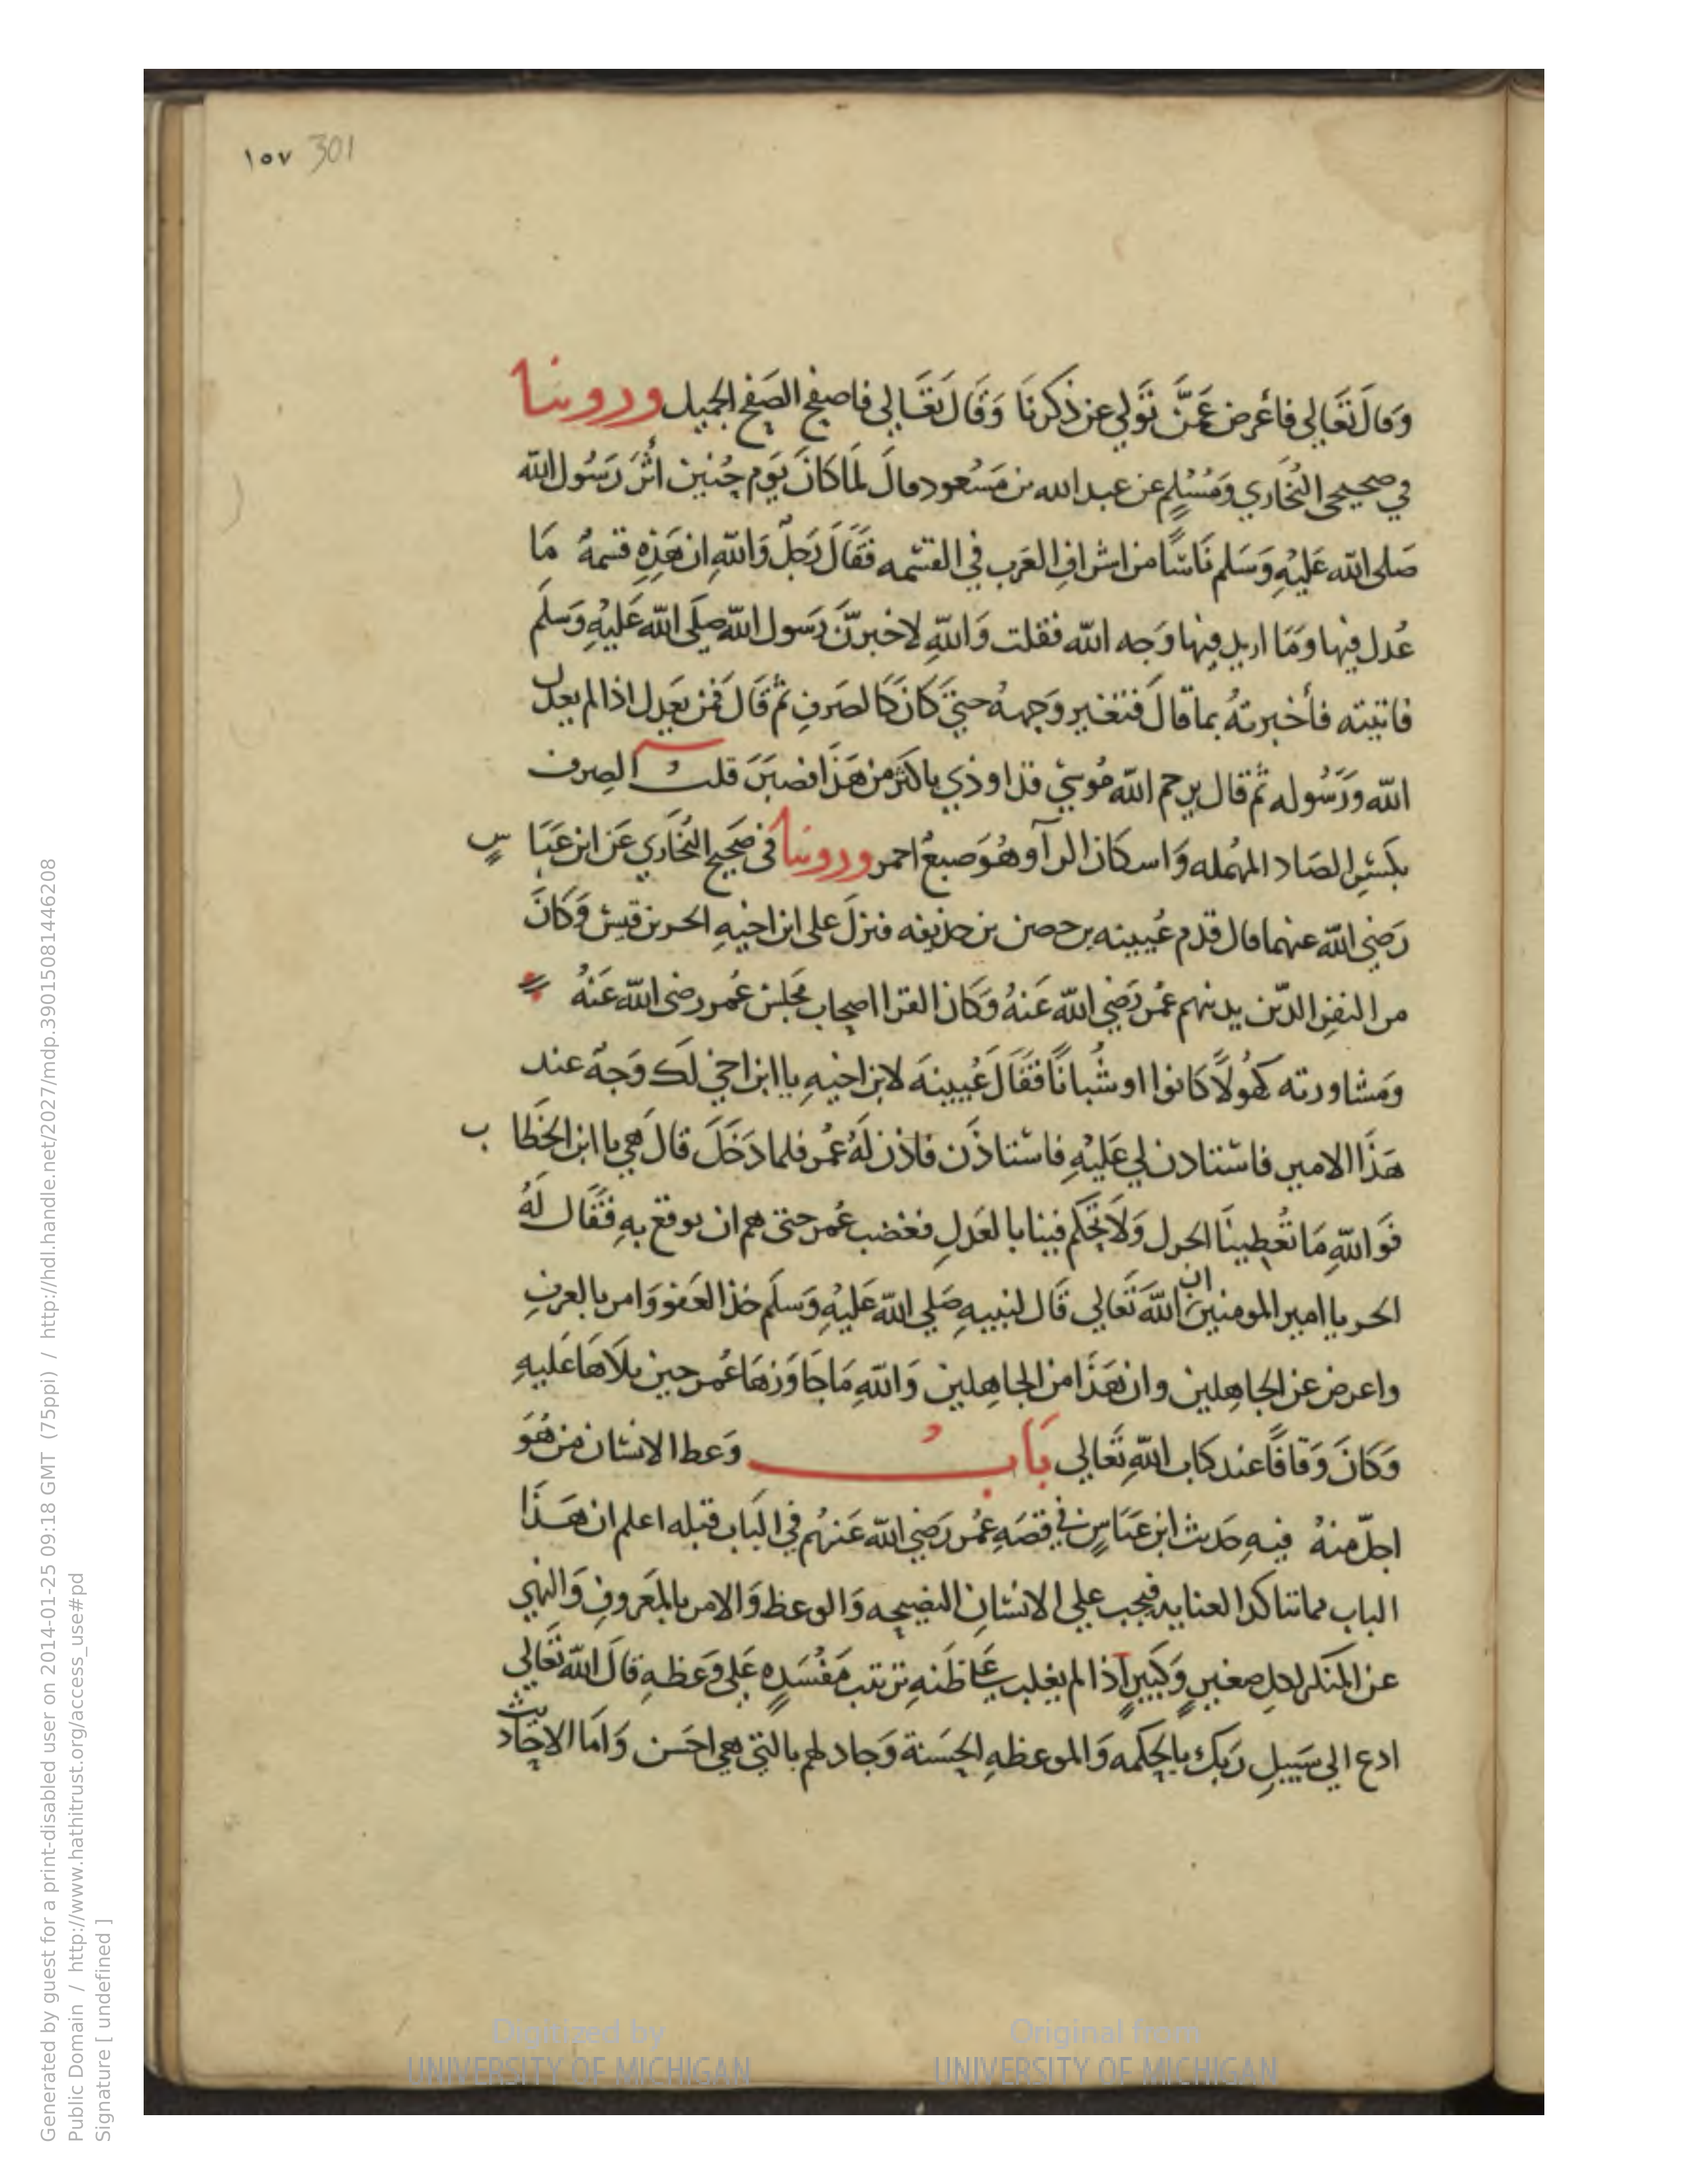 ١٥٧ 301
وَقالَ تَعَالى فأعْرض عَمَّنْ تَوَلي عن ذكرنَا وَقَالَ تَعَالى فاصفح الصَفح الجميل وروينا
في صحيحى البُخَاري وَمُسْلِم عن عبد الله بن مَسْعود قالَ لَمَا كانَ يَوْم حُنَين أثَرَ رَسُول الله
صَلى الله عَليْهِ وَسَلم نَاسًا من اشرافِ العَرب في القسْمه فقَالَ رَجلٌ وَاللهِ ان هَذِهِ قسمةٌ مَا
عُدل فيها وَمَا اريد فيها وَجه الله فقلت وَاللهِ لاخبرنَّ رَسول الله صَلَى الله عَليْهِ وَسَلَم
فاتيته فأخبرتهُ بما قالَ فتغير وَجههُ حتيَ كانَ كَالصَرفِ ثم قَالَ فَمَن يَعدل اذا لم يعدل
الله وَرَسُوله ثم قال يرحم الله مُوسَيْ قد اوذي باكثَرَ من هَذَا فصَبَرَ قلتُ الصِرف
بكَسْرِ الصَاد المهْمله وَاسكان الرآ وهُوَ صبغٌ احمر وروينا فى صَحيح البُخَاري عَن ابن عَبَا سٍ
رَضي الله عنهما قال قدم عُيينه بن حصن بن حذيفه فنزلَ على ابن اخيهِ الحر بن قيس وَكَانَ
من النفرِ الذين يدنيهم عُمَر رَضي الله عَنهُ وَكَان القرا اصحاب مجلس عُمر رضى الله عَنهُ
وَمَشاورته كهُولًا كانوا او شُبانًا فقَالَ عُيينةَ لابن اخيهِ يا ابن اخي لَك وَجهٌ عند
هَذَا الامير فاسْتادن لي عَليْهِ فاسْتاذَن فاذن لَهُ عُمر فلما دَخَلَ قالَ هِي يا ابن الخَطا ب
فَوَ اللهِ مَا تُعْطِينَا الجزل وَلَا تَحْكم فينا بالعَدلِ فغضب عُمر حتى هم ان يوقع بهِ فقَال لَهُ
الحر يا امير المومنين ان اللهَ تَعَالي قَال لنبيهِ صَلي الله عَليْهِ وَسَلم خذ العَفو وَامر بالعرفِ
واعرض عن الجاهِلين وان هَذَا من الجاهِلين وَاللهِ مَا جَاوَزهَا عُمر حين تَلَاهَا عَليهِ
وَكَانَ وَقافًا عند كتاب اللهِ تَعَالي بَابُ وَعظ الانسَان من هُوَ
اجلّ منهُ فيهِ حَديث ابن عَبَاسٍ في قصَهِ عُمَر رَضي الله عَنهُم في البَاب قبله اعلم ان هَذَا
الباب مما تتاكد العنايه فيجب علي الانسَانِ النصيحه وَالوعظ وَالامر بالمَعروفِ وَالنهي
عن المنكر لكل صغيرٍ وَكبيرٍ اذا لم يغلب عَلَي ظَنهِ ترتب مفسَدةٍ عَلى وَعظهِ قالَ الله تَعَالي
ادع الي سَبيلِ رَبك بالحكمه وَالموعظهِ الحسَنة وَجادلهم بالتي هي احسَن وَامَا الاحَاديث